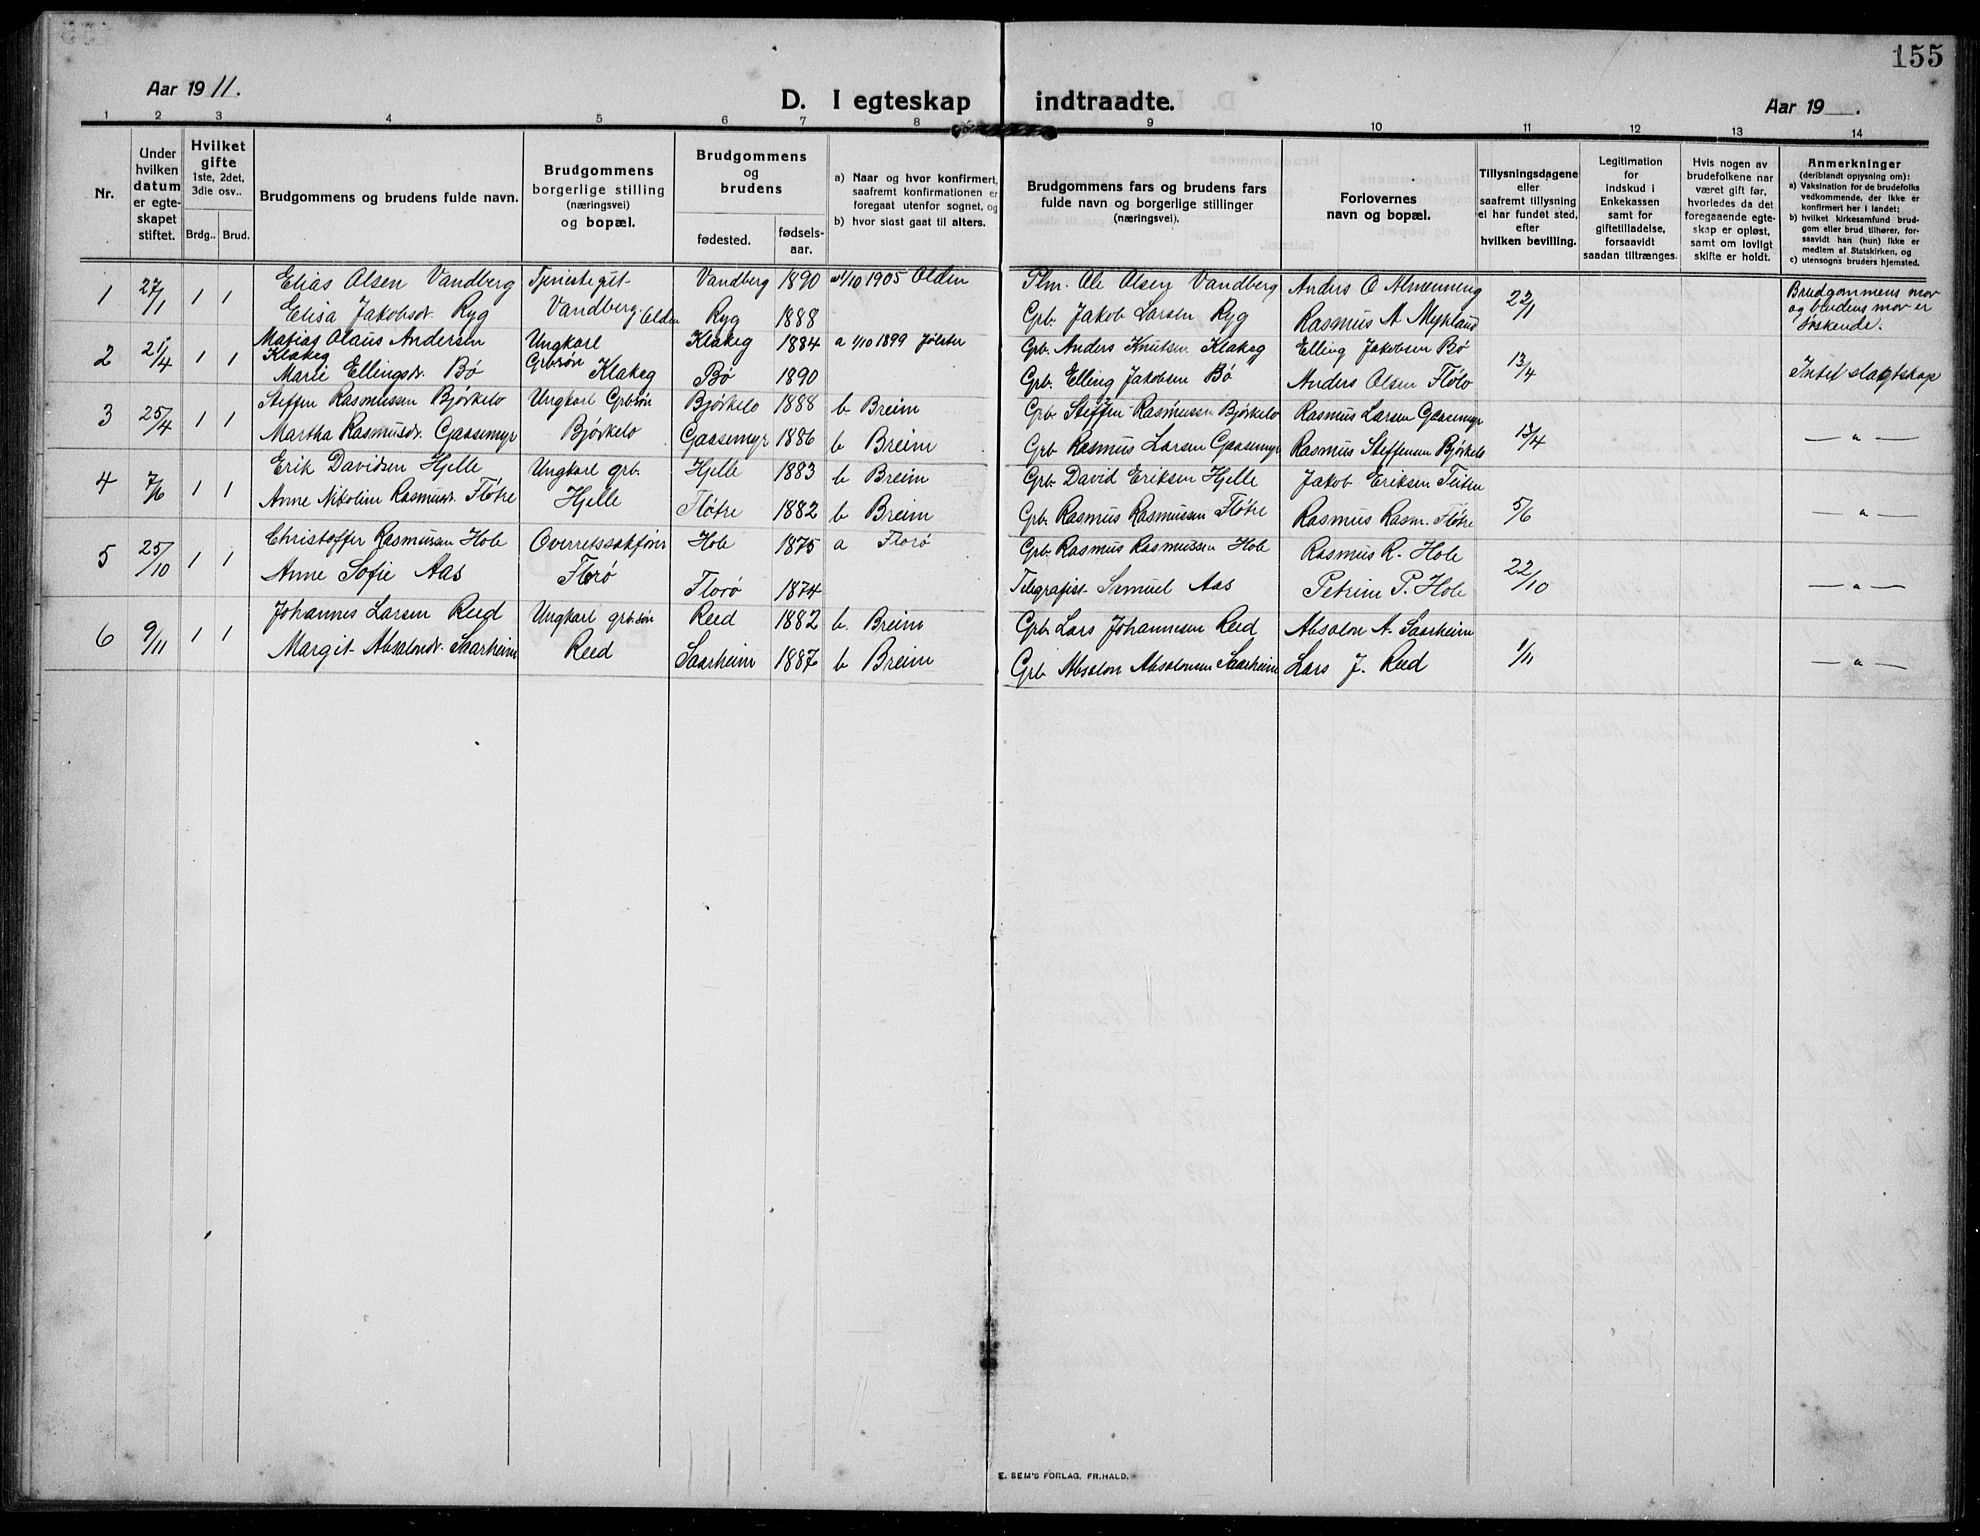 155
Aar 1911.
D. I egteskap indtraadte.
Aar 19 .
1 2 3 4 5 6 7 8 9 10 11 12 13 14
Nr.
Under hvilken datum er egteskapet stiftet.
Hvilket gifte
1ste, 2det, 3die osv..
Brdg. Brud.
Brudgommens og brudens fulde navn.
Brudgommens borgerlige stilling (næringsvei) og bopæl.
Brudgommens og brudens
fødested. fødselsaar.
a) Naar og hvor konfirmert, saafremt konfirmationen er foregaat utenfor sognet, og
b) hvor sidst gaat til alters.
Brudgommens fars og brudens fars fulde navn og borgerlige stillinger (næringsvei).
Forlovernes navn og bopæl.
Tillysningsdagene eller saafremt tillysning ei har fundet sted, efter hvilken bevilling.
Legitimation for indskud i Enkekassen samt for giftetilladelse, forsaavidt saadan tiltrænges.
Hvis nogen av brudefolkene har været gift før, hvorledes da det foregaaende egteskap er opløst, samt om lovligt skifte er holdt.
Anmerkninger
(deriblandt oplysning om):
a) Vaksination for de brudefolks vedkommende, der ikke er konfirmert her i landet;
b) hvilket kirkesamfund brudgom eller brud tilhører, forsaavidt han (hun) ikke er medlem af Statskirken, og
c) utensogns bruders hjemsted.
1 27/1 1 1 Elias Olsen Vandberg Tjenestegut Vandberg 1890 a 1/10 1905 Olden Plm. Ole Olsen Vandberg Anders O Almenning 22/1 Brudgommens mor og brudens mor er søskende.
Elisa Jakobsdr. Ryg Vandberg. Olden Ryg 1888 Grb. Jakob Larsen Ryg Rasmus A Myklund
2 21/4 1 1 Matias Olaus Andersen Klakeg Ungkarl Grb.søn Klakeg 1884 a 1/10 1899 Jølster Grb. Anders Knutsen Klakeg Elling Jakobsen Bø 13/4 Intet slagtskap
Marie Ellingsdr. Bø Klakeg Bø 1890 Grb. Elling Jakobsen Bø Anders Olsen Flølo
3 25/4 1 1 Steffen Rasmussen Bjørkelo Ungkarl Grb.søn Bjørkelo 1888 b Breim Grb Steffen Rasmussen Bjørkelo Rasmus Larsen Gaasemyr 13/4 — " —
Martha Rasmusdr. Gaasemyr Bjørkelo Gaasemyr 1886 b Breim Grb Rasmus Larsen Gaasemyr Rasmus Steffensen Bjørkelo
4 7/6 1 1 Erik Davidsen Hjelle Ungkarl grb. Hjelle 1883 b Breim Grb David Eriksen Hjelle Jakob Eriksen Feiten 5/6 — " —
Anne Nikoline Rasmusdr. Fløtre Hjelle Fløtre 1882 b Breim Grb. Rasmus Rasmussen Fløtre Rasmus Rasm. Fløtre
5 25/10 1 1 Christoffer Rasmussen Hole Overretssakfører Hole 1875 a Florø Grb. Rasmus Rasmussen Hole Rasmus R. Hole 22/10 — " —
Anne Sofie Aas Florø Florø 1874 Telegrafist Samuel Aas Petrine P. Hole
6 9/11 1 1 Johannes Larsen Reed Ungkarl grb.søn Reed 1882 b. Breim Grb. Lars Johannesen Reed Absalon A. Saarheim 1/11 — " —
Margit Absalonsdr. Saarheim Reed Saarheim 1887 b Breim Grb Absalon Absalonsen Saarheim Lars J. Reed
E. SEM'S FORLAG, FR.HALD.